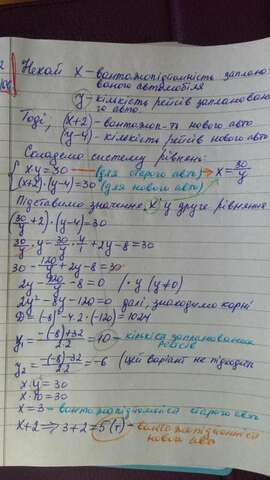 Нехай x - вантажопідйомність заплано-
ваного автомобіля
y - кількість рейсів запланован-
ого авто.
Тоді, (x+2) - вантажоп-ть нового авто
(y-4) - кількість рейсів нового авто
Складемо систему рівнень:
{ x·y=30 (для старого авто) → x = 30/y
(x+2)·(y-4)=30 (для нового авто)
Підставимо значення "x" у друге рівняння
(30/y +2)·(y-4)=30
30/y · y - 30/y · 4/1 + 2y - 8 = 30
30 - 120/y + 2y - 8 = 30
2y - 120/y - 8 = 0 /·y (y≠0)
2y² - 8y - 120 = 0 далі, знаходимо корні
D = (-8)² - 4·2·(-120) = 1024
y₁ = (-(-8)+32)/(2·2) = 10 - кількість запланованих
рейсів
y₂ = (-(-8)-32)/(2·2) = -6 (цей варіант не підходить
x·y = 30
x·10 = 30
x = 3 - вантажопідйомність старого авто
x+2 ⇒ 3+2 = 5 (т) - вантажопідйомність
нового авто